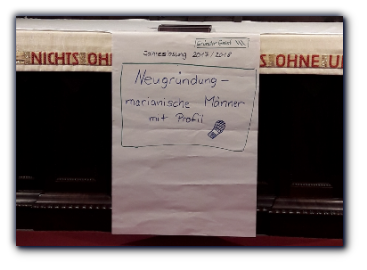 NICHTS OHNE
OHNE U
Jahreslosung 2017/2018
Neugründung -
marianische Männer
mit Profil